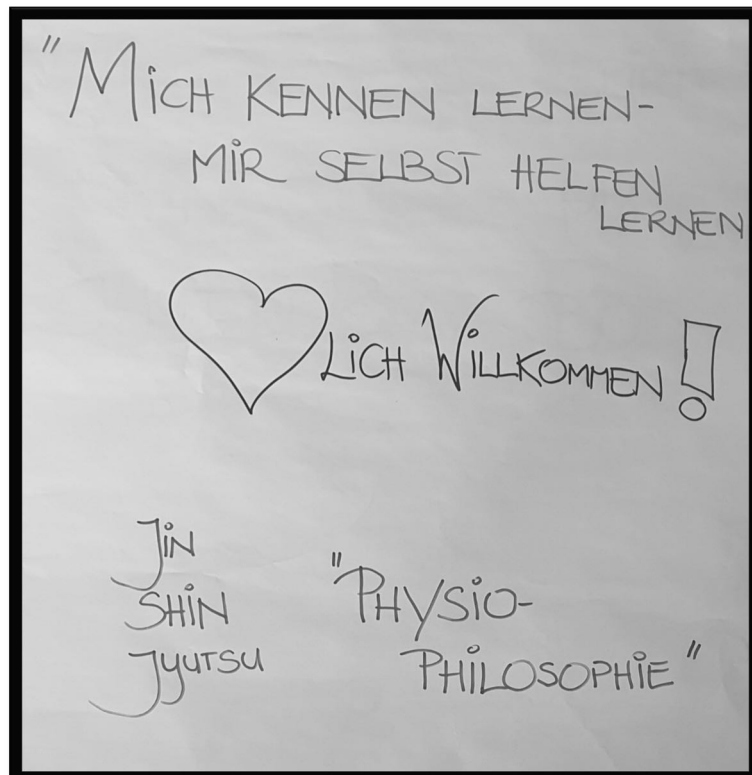 "MiCH KENNEN LERNEN-
MiR SELBST HELFEN
LERNEN
LiCH WiLLKOMMEN!
JiN
SHiN
JYUTSU
"PHYSiO-
PHiLOSOPHiE"